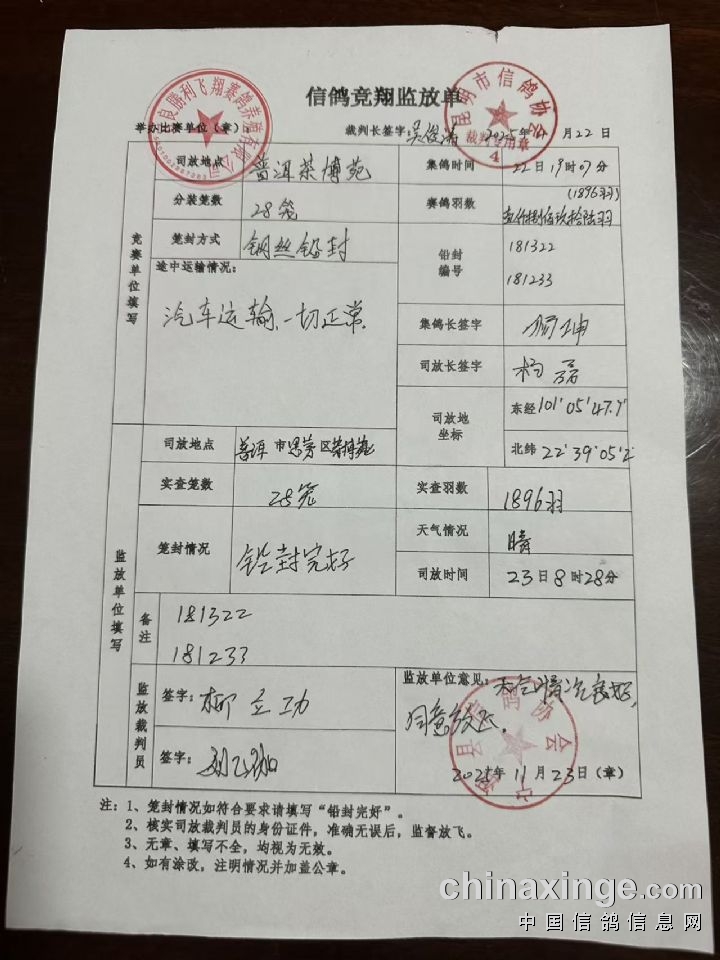 信鸽竞翔监放单
举办比赛单位(章):
裁判长签字: 2025年 月22日
良勝利飞翔赛鸽养殖有限公司
昆明市信鸽协会
裁判专用章
4
竞赛单位填写
司放地点 普洱茶博苑
集鸽时间 22日19时07分
分装笼数 28笼
赛鸽羽数 (1896羽)
壹仟捌佰玖拾陆羽
笼封方式 钢丝铅封
铅封编号 181322
181233
途中运输情况:
汽车运输,一切正常
集鸽长签字
司放长签字 杨磊
司放地坐标
东经101°05′47.7″
北纬22°39′05.2″
监放单位填写
司放地点 普洱市思茅区茶博苑
实查笼数 28笼
实查羽数 1896羽
笼封情况 铅封完好
天气情况 晴
司放时间 23日8时28分
备注 181322
181233
监放裁判员
签字: 柳立功
签字:
监放单位意见: 天气情况良好,
同意放飞.
2025年11月23日(章)
信鸽协会
注:1、笼封情况如符合要求请填写“铅封完好”。
2、核实司放裁判员的身份证件,准确无误后,监督放飞。
3、无章、填写不全,均视为无效。
4、如有涂改,注明情况并加盖公章。
chinaxinge.com
中国信鸽信息网